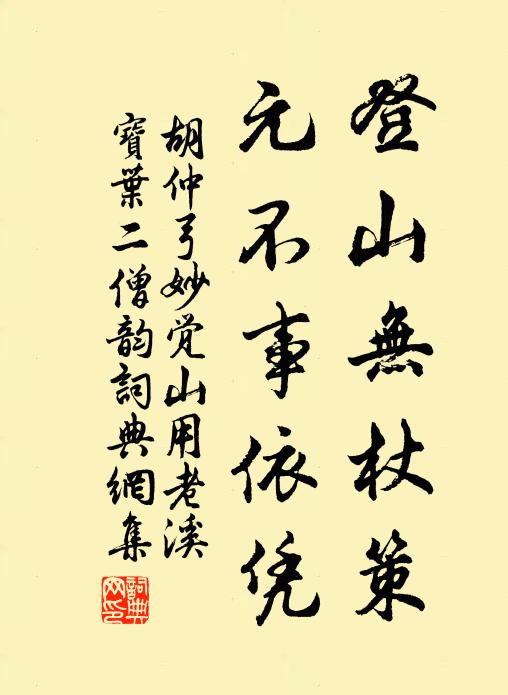 登山無杖策
元不事依凭
胡仲弓妙觉山用老溪
寶葉二僧韵詞典網集
詞典网印